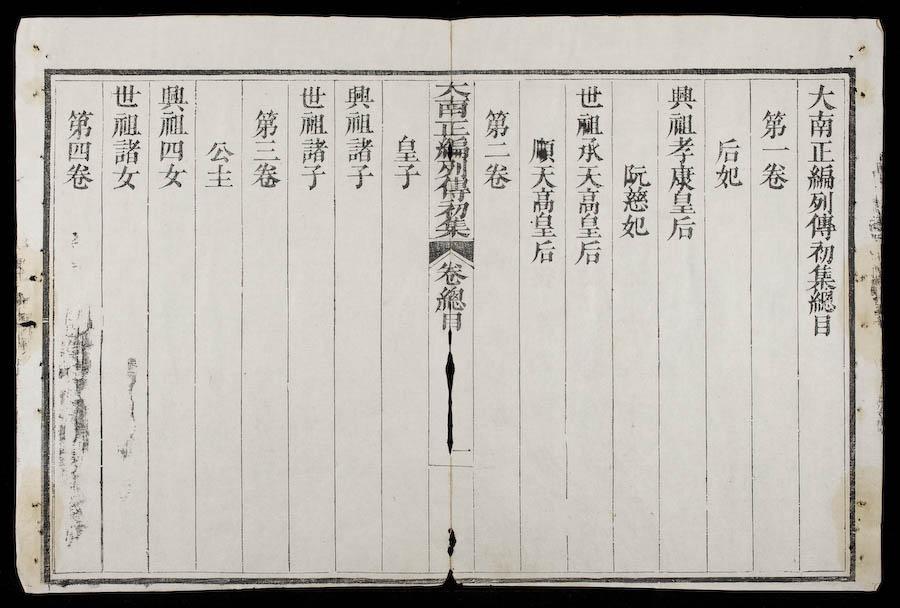 大南正編列傳初集總目
第一卷
后妃
興祖孝康皇后
阮慈妃
世祖承天高皇后
順天高皇后
第二卷
大南正編列傳初集 卷總目 一
皇子
興祖諸子
世祖諸子
第三卷
公主
興祖四女
世祖諸女
第四卷